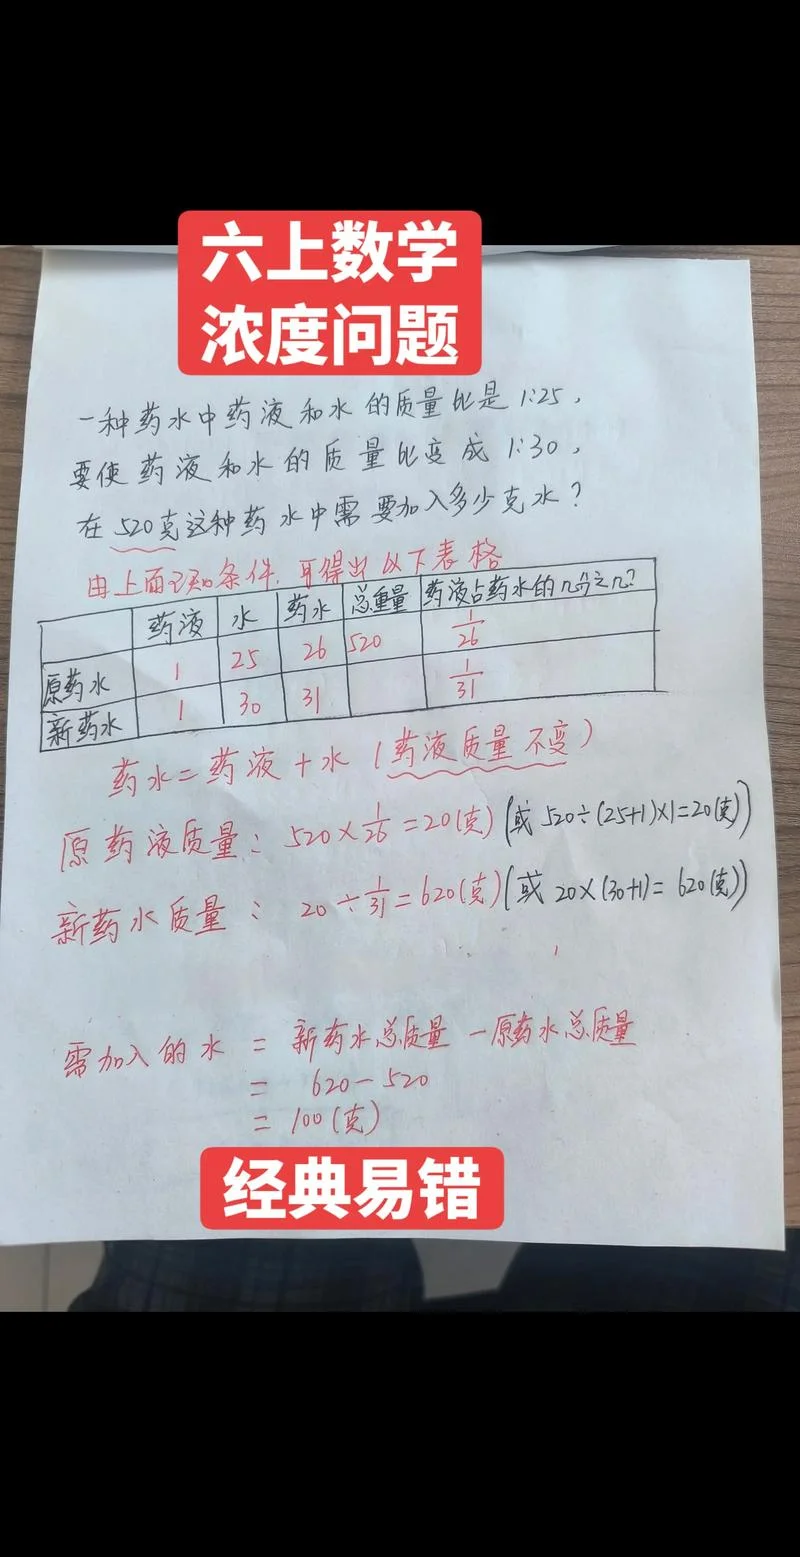 六上数学
浓度问题
一种药水中药液和水的质量比是1:25,
要使药液和水的质量比变成1:30,
在520克这种药水中需要加入多少克水?
由上面已知条件,可得出以下表格
药液 水 药水 总重量 药液占药水的几分之几?
原药水 1 25 26 520 1/26
新药水 1 30 31 1/31
药水=药液+水(药液质量不变)
原药液质量: 520×1/26=20(克)(或 520÷(25+1)×1=20(克))
新药水质量: 20÷1/31=620(克)(或 20×(30+1)=620(克))
需加入的水 = 新药水总质量-原药水总质量
= 620-520
= 100(克)
经典易错